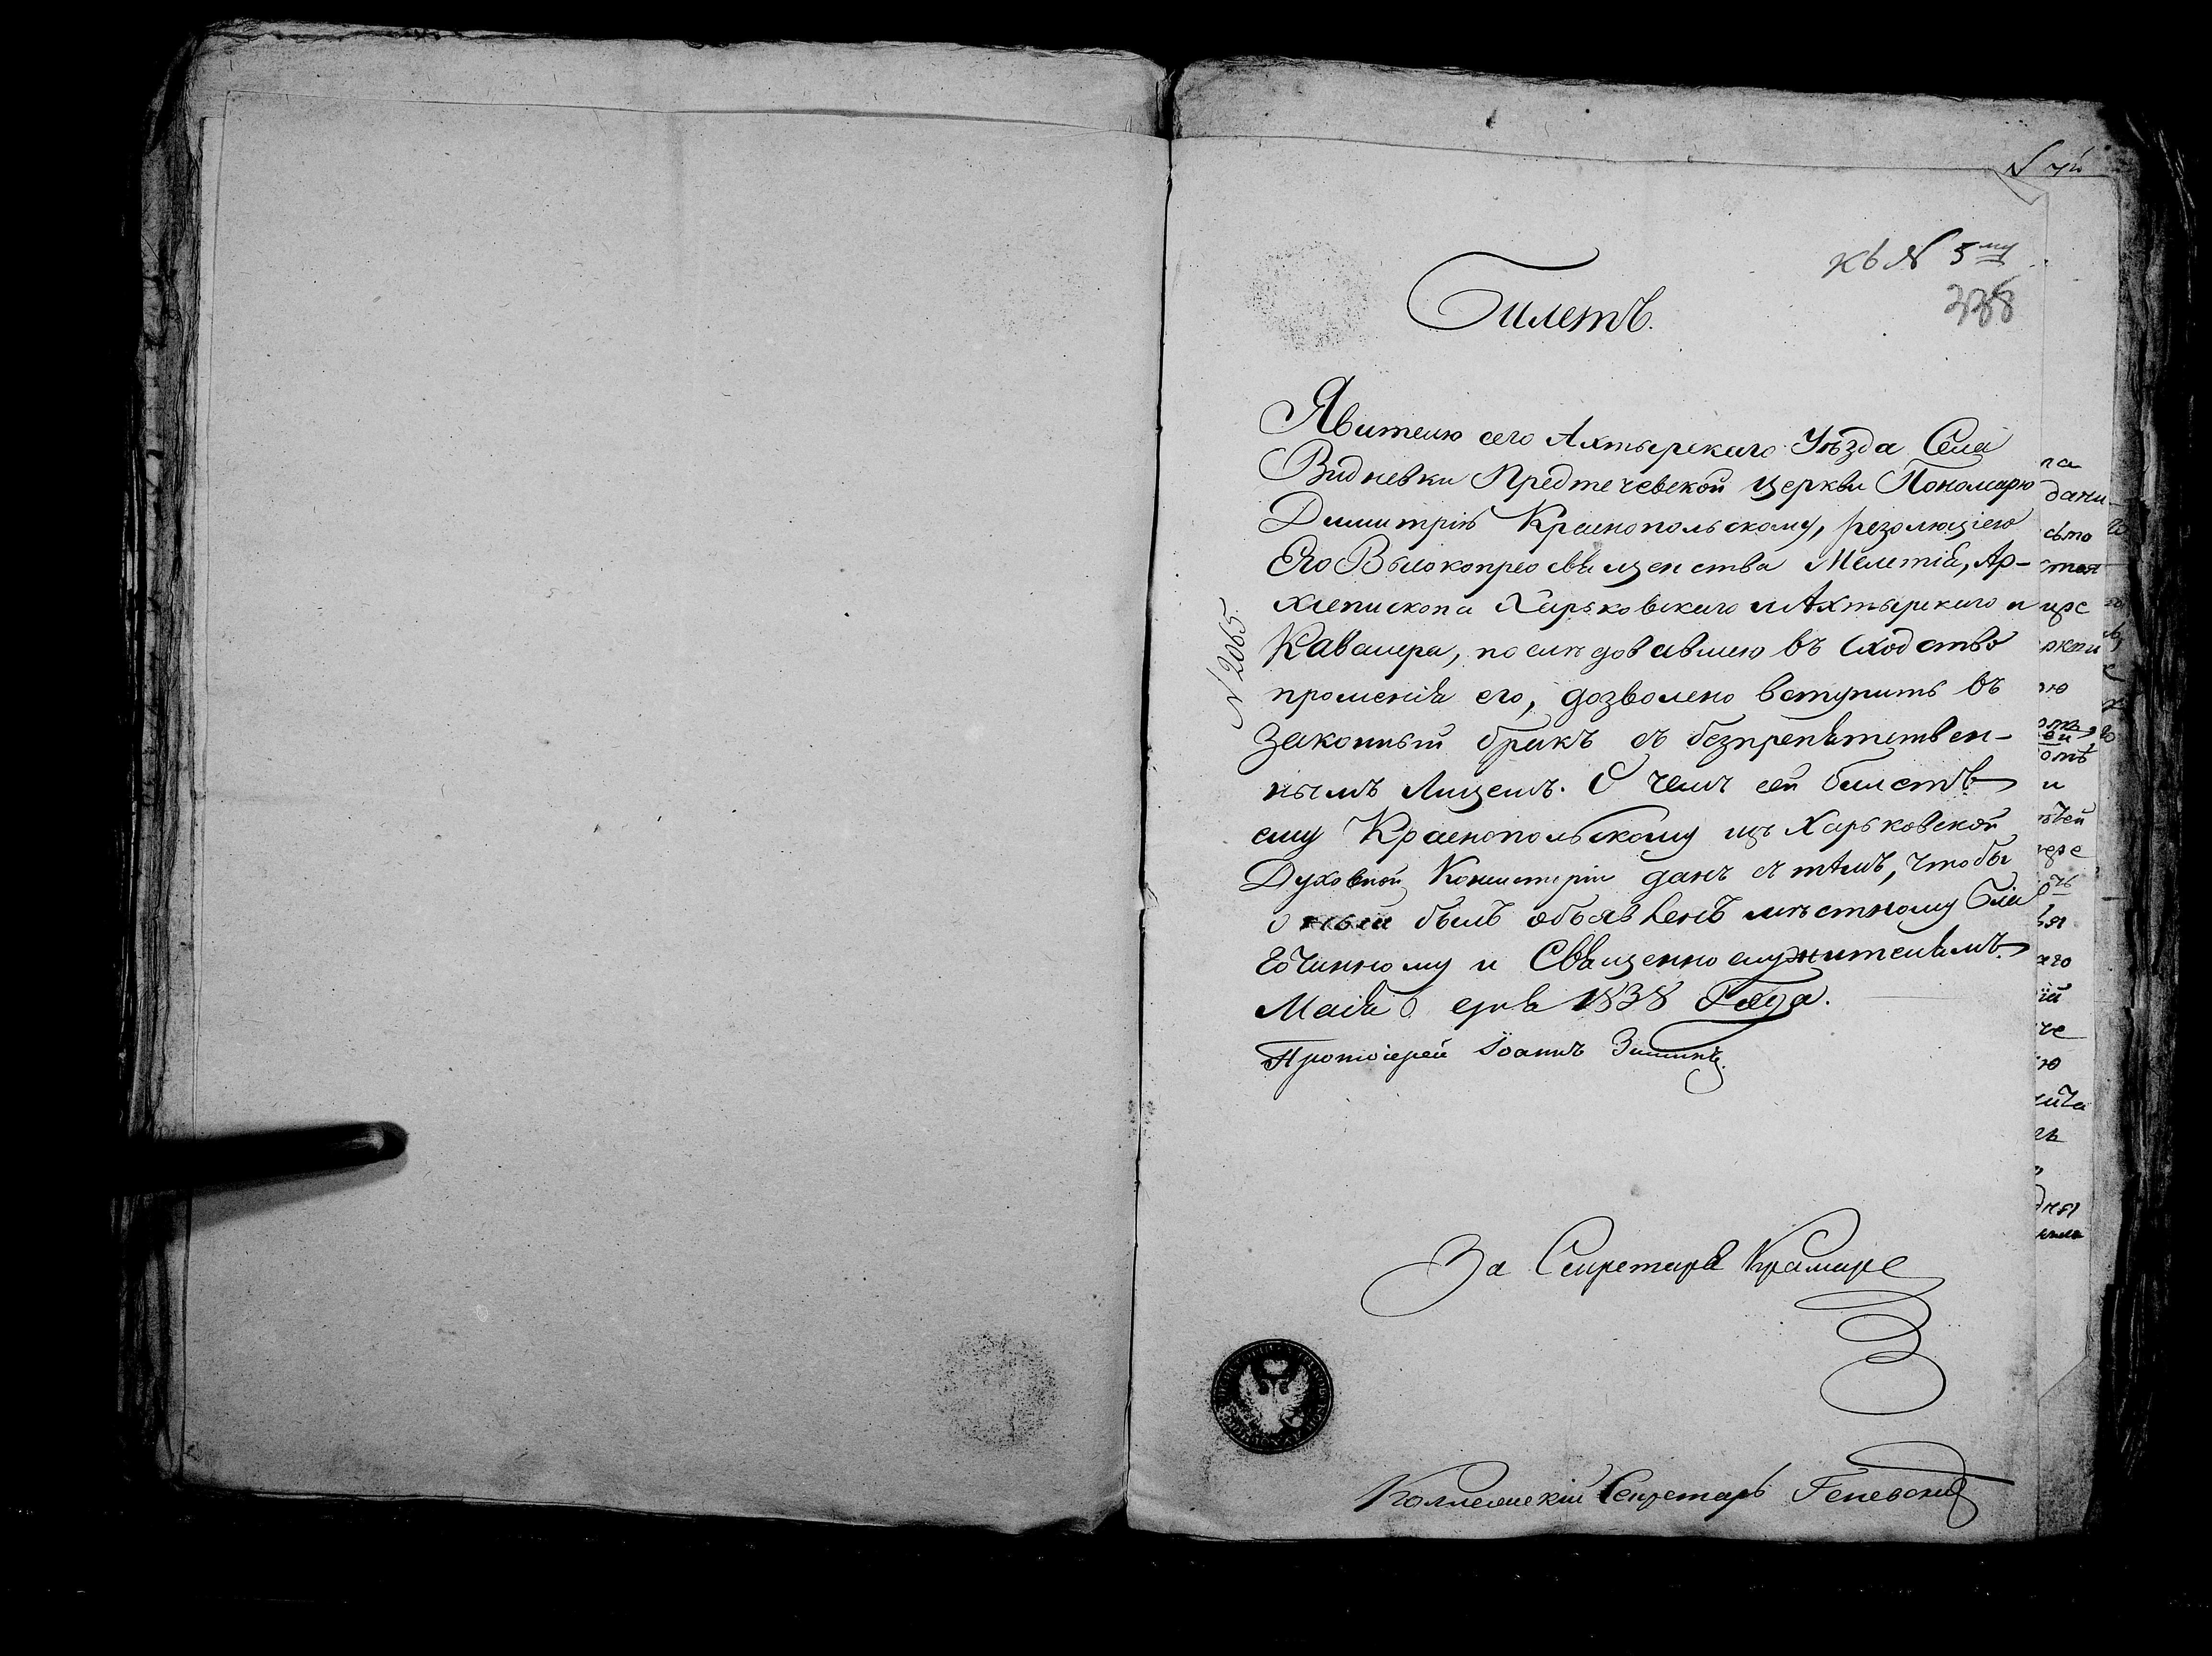 къ N 5му
Билетъ.
Явителю сего Ахтырскаго Уѣзда Села
Видневки Предтечевской церкви Пономарю
Димитрію Краснопольскому, резолюціею
Его Высокопреосвященства Мелетія, Ар-
хіепископа Харьковскаго и Ахтырскаго и
Кавалера, послѣдовавшею въ сходство
прошенія его, дозволено вступить въ
законный бракъ съ безпрепятствен-
нымъ лицемъ. О чемъ сей билетъ
ему Краснопольскому изъ Харьковской
Духовной Консисторіи данъ съ тѣмъ, чтобы
оный былъ объявленъ мѣстному Бла
гочинному и Священнослужителямъ.
Маія 6 дня 1838 Года.
Протоіерей Іоаннъ Зиминъ.
N 2065.
За Секретаря Крамаре
Коллежскій Секретарь